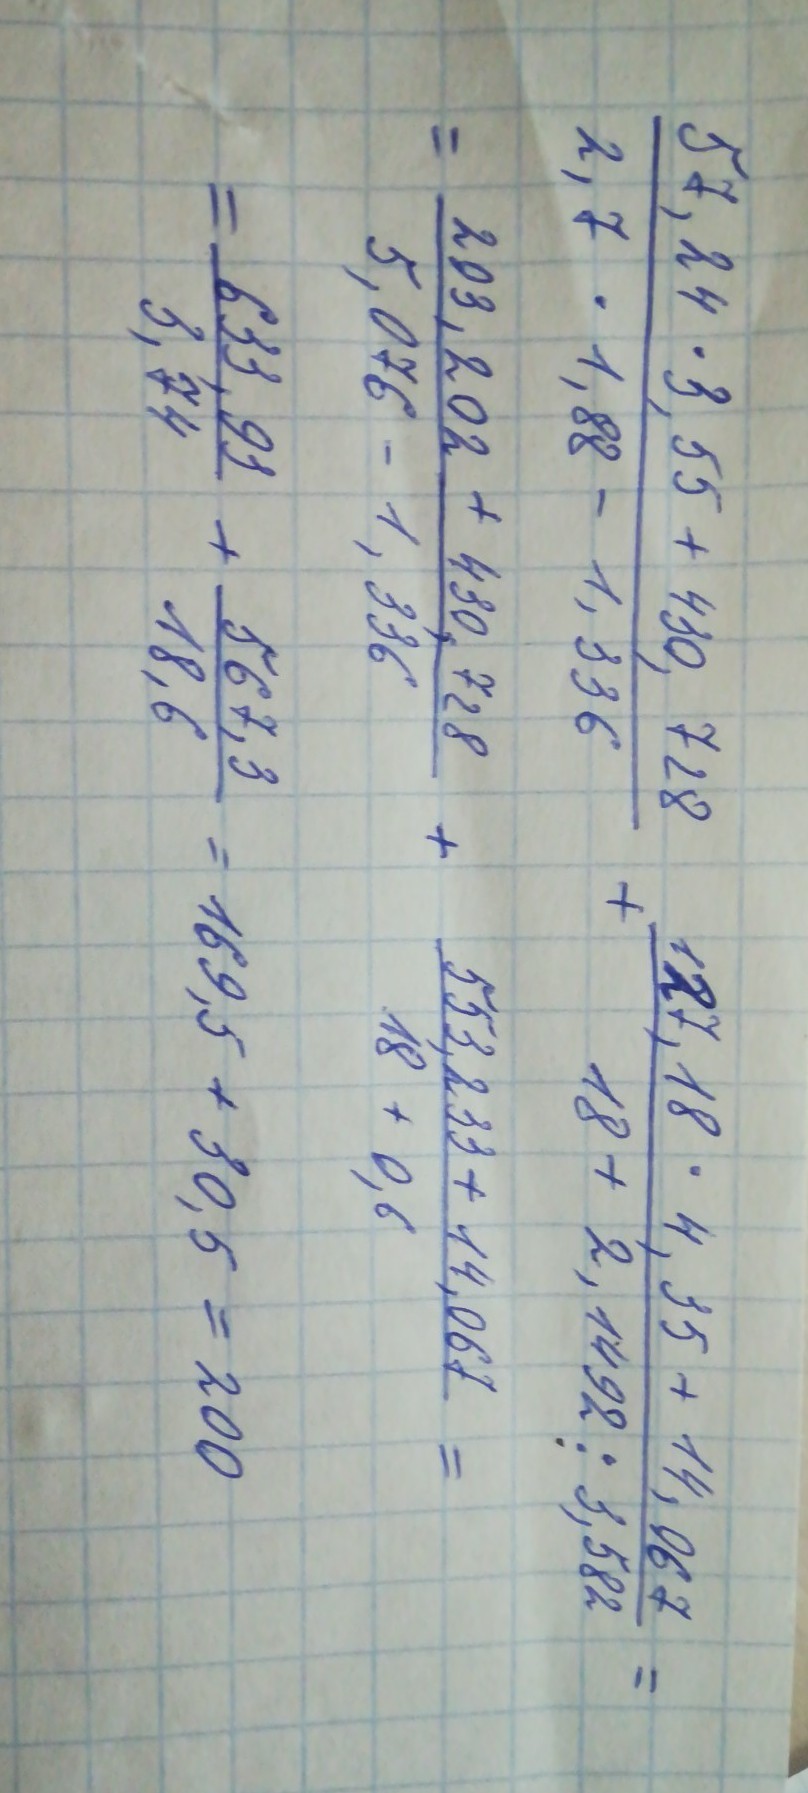 57,24 · 3,55 + 430,728 / 2,7 · 1,88 - 1,336 + 127,18 · 4,35 + 14,067 / 18 + 2,1492 : 3,582 =
= 203,202 + 430,728 / 5,076 - 1,336 + 553,233 + 14,067 / 18 + 0,6 =
= 633,93 / 3,74 + 567,3 / 18,6 = 169,5 + 30,5 = 200